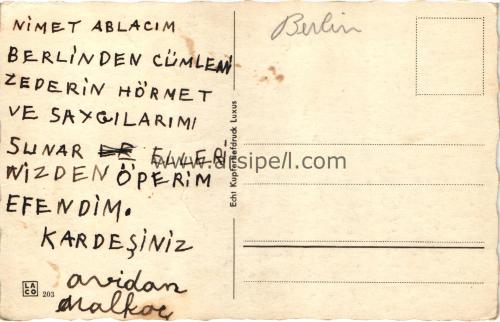 NİMET ABLACIM
BERLİNDEN CÜMLENİ
ZEDERİN HÖRMET
VE SAYGILARIMI
SUNAR VE ELLERİ
NİZDEN ÖPERİM
EFENDİM.
KARDEŞİNİZ
avidan
Malkoç
LACO 203
Berlin
Echt Kupfertiefdruck Luxus
www.arsipell.com